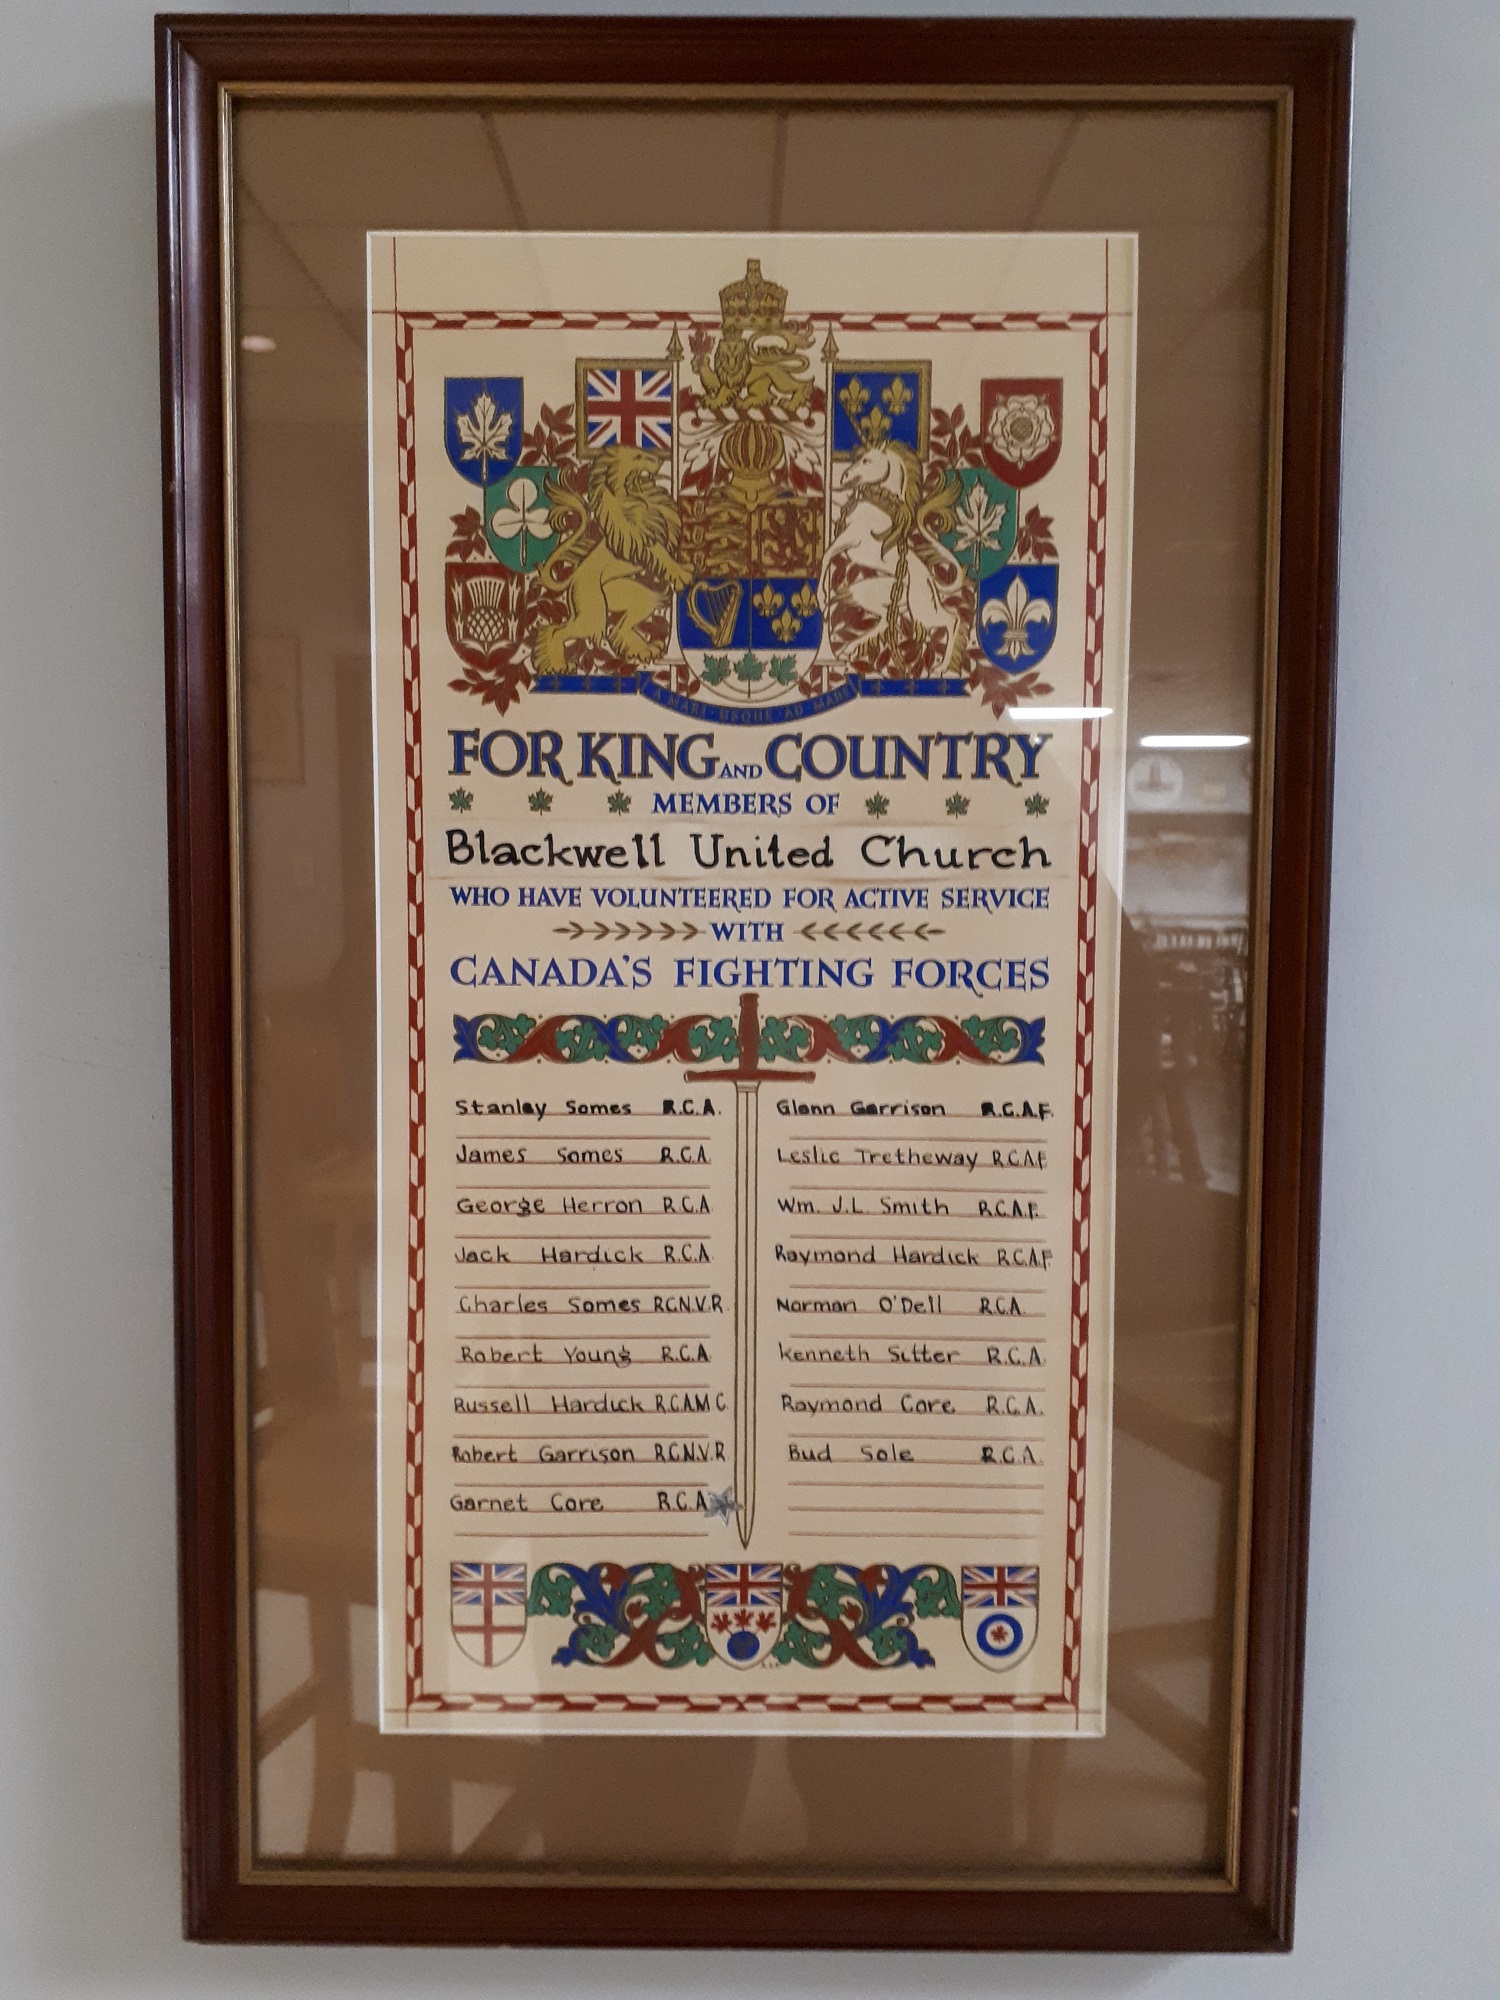 A MARI · USQUE · AD MARE
FOR KING AND COUNTRY
MEMBERS OF
Blackwell United Church
WHO HAVE VOLUNTEERED FOR ACTIVE SERVICE
WITH
CANADA'S FIGHTING FORCES
Stanley Somes R.C.A.
James Somes R.C.A.
George Herron R.C.A.
Jack Hardick R.C.A.
Charles Somes R.C.N.V.R.
Robert Young R.C.A.
Russell Hardick R.C.A.M.C.
Robert Garrison R.C.N.V.R.
Garnet Core R.C.A.
Glenn Garrison R.C.A.F.
Leslie Tretheway R.C.A.F.
Wm. J.L. Smith R.C.A.F.
Raymond Hardick R.C.A.F.
Norman O'Dell R.C.A.
Kenneth Sitter R.C.A.
Raymond Core R.C.A.
Bud Sole R.C.A.